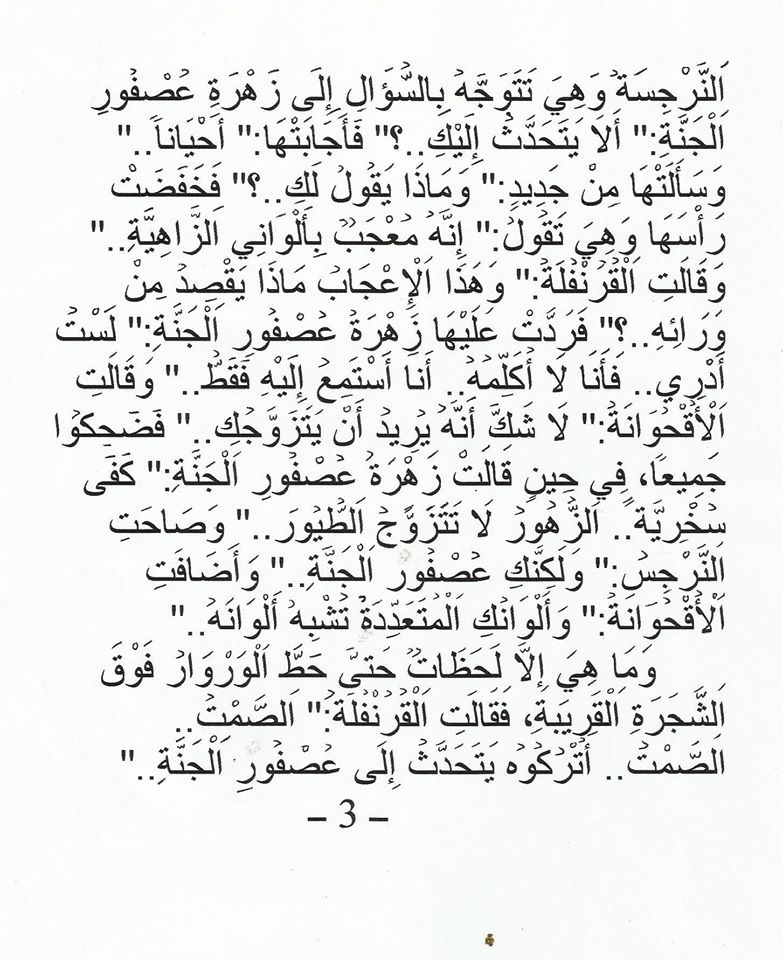 اَلنَّرْجِسَةُ وَهِيَ تَتَوَجَّهُ بِالسُّؤَالِ إِلَى زَهْرَةِ عُصْفُورِ
اَلْجَنَّةِ:" أَلَا يَتَحَدَّثُ إِلَيْكِ..؟" فَأَجَابَتْهَا:" أَحْيَاناً.."
وَسَأَلَتْهَا مِنْ جَدِيدٍ:" وَمَاذَا يَقُولُ لَكِ..؟" فَخَفَضَتْ
رَأْسَهَا وَهِيَ تَقُولُ:" إِنَّهُ مُعْجَبٌ بِأَلْوَانِي اَلزَّاهِيَّةِ.."
وَقَالَتِ اَلْقُرُنْفُلَةُ:" وَهَذَا اَلْإِعْجَابُ مَاذَا يَقْصِدُ مِنْ
وَرَائِهِ..؟" فَرَدَّتْ عَلَيْهَا زَهْرَةُ عُصْفُورِ اَلْجَنَّةِ:" لَسْتُ
أَدْرِي.. فَأَنَا لَا أُكَلِّمُهُ.. أَنَا أَسْتَمِعُ إِلَيْهِ فَقَطْ.." وَقَالَتِ
اَلْأُقْحُوَانَةُ:" لَا شَكَّ أَنَّهُ يُرِيدُ أَنْ يَتَزَوَّجَكِ.." فَضَحِكُوا
جَمِيعًا، فِي حِينٍ قَالَتْ زَهْرَةُ عُصْفُورِ اَلْجَنَّةِ:" كَفَى
سُخْرِيَّة.. اَلزُّهُورُ لَا تَتَزَوَّجُ اَلطُّيُورَ.." وَصَاحَتِ
اَلنَّرْجِسُ:" وَلَكِنَّكِ عُصْفُور اَلْجَنَّةِ.." وَأَضَافَتِ
اَلْأُقْحُوَانَةُ:" وَأَلْوَانُكِ اَلْمُتَعَدِّدَةُ تُشْبِهُ أَلْوَانَهُ.."
وَمَا هِيَ إِلاَّ لَحَظَاتٌ حَتىَّ حَطَّ اَلْوَرْوَارُ فَوْقَ
اَلشَّجَرَةِ اَلْقَرِيبَةِ، فَقَالَتِ اَلْقُرُنْفُلَةُ:" اَلصَّمْتُ..
اَلصَّمْتُ.. أُتْرُكُوهُ يَتَحَدَّثُ إِلَى عُصْفُورِ اَلْجَنَّةِ.."
– 3 –